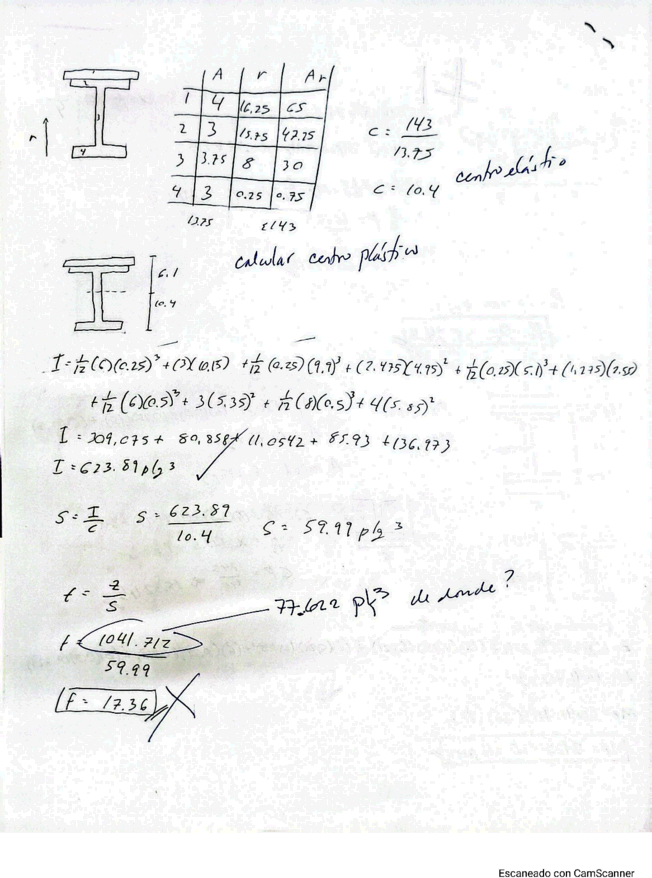 A r Ar
1 4 16.25 65
2 3 15.75 47.25
3 3.75 8 30
4 3 0.25 0.75
13.75 Σ143
C = 143 / 13.75
C = 10.4
centro elástico
calcular centro plástico
6.1
10.4
I = 1/12 (6)(0.25)³ + (3)(10.15) + 1/12 (0.25)(9.9)³ + (2.475)(4.95)² + 1/12 (0.25)(5.1)³ + (1.275)(2.55)
+ 1/12 (6)(0.5)³ + 3(5.35)² + 1/12 (8)(0.5)³ + 4(5.85)²
I = 309.075 + 80.858 + 11.0542 + 85.93 + 136.973
I = 623.89 plg 3
S = I/C S = 623.89 / 10.4 S = 59.99 plg 3
f = Z/S
77.622 plg³ de donde?
f = 1041.712 / 59.99
f = 17.36
Escaneado con CamScanner